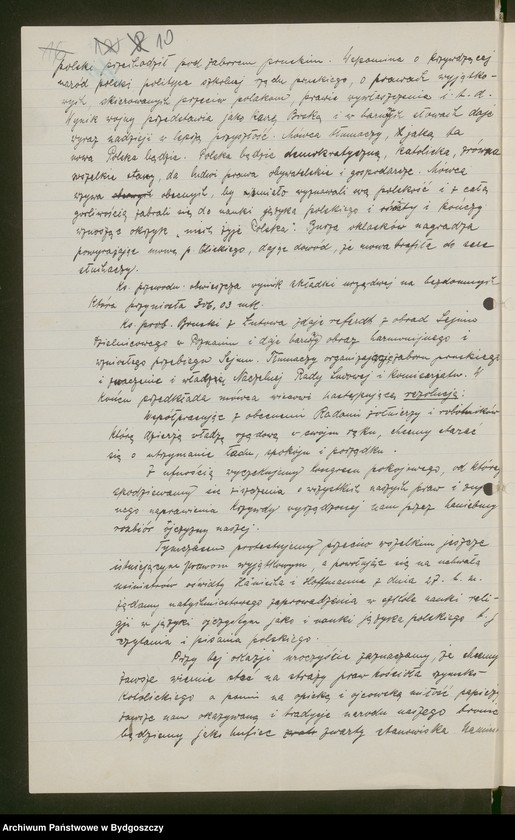 10
polski przechodził pod zaborem pruskim. Wspomina o krzywdzącej
naród polski polityce szkolnej rządu pruskiego, o prawach wyjątko-
wych, skierowanych przeciw polakom prawie wywłaszczenia i t. d.
Wynik wojny przedstawia jako karę Boską i w barwnych słowach daje
wyraz nadzieji w lepszą przyszłość. Mówca tłumaczy, że jaką ta
nowa Polska będzie. Polska będzie demokratyczną, katolicką, zrówna
wszelkie stany, da ludowi prawa obywatelskie i gospodarcze. Mówca
wzywa obecnych, by śmiało wyznawali swą polskość i z całą
gorliwością zabrali się do nauki języka polskiego i oświaty i kończy
wznosząc okrzyk „niech żyje Polska". Burza oklasków nagradza
porywającą mowę p. dając dowód, że mowa trafiła do serc
słuchaczy.
Ks. przewodn. obwieszcza wynik składki urządzonej na bezdomnych
która przyniosła 306,03 mk.
Ks. prob. z Lutowa zdaje referat z obrad Sejmu
Dzielnicowego w Poznaniu i daje barwny obraz harmonijnego i
wzniosłego przebiegu Sejmu. Tłumaczy organizację zaboru pruskiego
i znaczenie i władzę Naczelnej Rady Ludowej i komisarzatu. W
końcu przedkłada mówca wiecowi następującą rezolucję:
Współpracując z obecnemi Radami żołnierzy i robotników
które dzierżą władzę rządową w swojem ręku, chcemy starać
się o utrzymanie ładu, spokoju i porządku.
Z ufnością wyczekujemy kongresu pokojowego, od którego
spodziewamy się wszystkich naszych praw i
nego naprawienia krzywdy wyrządzonej nam przez haniebny
rozbiór Ojczyzny naszej.
Tymczasem protestujemy przeciw wszelkim jeszcze
istniejącym prawom wyjątkowym, a powołując się na
ministrów oświaty Hänischa i Hoffmanna z dnia 27. b. m.
żądamy natychmiastowego zaprowadzenia w szkole nauki reli-
gji w języku ojczystym jako i nauki języka polskiego t. j.
czytania i pisania polskiego.
Przy tej okazji uroczyście zaznaczamy, że chcemy
zawsze wiernie stać na straży praw kościoła rzymsko-
katolickiego a pomni na opiekę i ojcowską miłość papieży
zawsze nam okazywaną i tradycje narodu naszego bronić
będziemy jako hufiec zwarty stanowiska
Archiwum Państwowe w Bydgoszczy